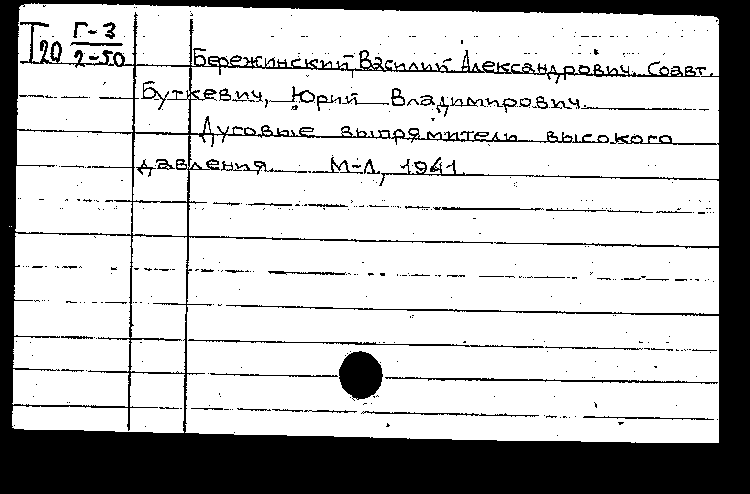 Т20 Г-3
2-50
Бережинский, Василий Александрович. Соавт.
Буткевич, Юрий Владимирович.
Дуговые выпрямители высокого
давления. М-Л, 1941.